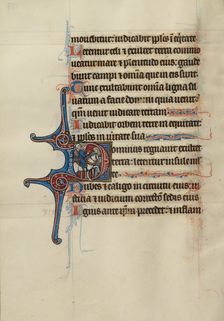 mouebitur: iudicabit pp̃los in eq̃tate
Letentur celi ⁊ exultet terra commo
ueatur mare ⁊ plenitudo eius:
gaudebunt campi ⁊ om̃ia que in eis sunt
exultabunt omnia ligna sil
uarum a facie dom̃i quia uenit:
qm̃ uenit iudicare terram
Iudicabit orbem terre in equitate:
⁊ pp̃los in ueritate sua
Dominus regnauit exultet
terra: letentur insule
Nubes ⁊ caligo in circuitu eius:
iusticia ⁊ iudicium correctio sedis eius
Ignis ante ip̃m precedet: ⁊ inflam